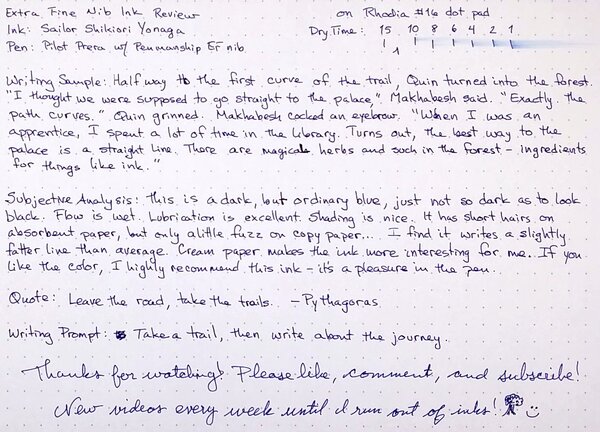 Extra Fine Nib Ink Review on Rhodia #16 dot pad
Ink: Sailor Shikiori Yonaga Dry Time: 15 10 8 6 4 2 1
Pen: Pilot Prera w/ Penmanship EF nib
Writing Sample: Half way to the first curve of the trail, Quin turned into the forest.
"I thought we were supposed to go straight to the palace," Makhabesh said. "Exactly. the
path curves." Quin grinned. Makhabesh cocked an eyebrow. "When I was an
apprentice, I spent a lot of time in the library. Turns out, the best way to the
palace is a straight line. There are magical herbs and such in the forest – ingredients
for things like ink."
Subjective Analysis: this is a dark, but ordinary blue, just not so dark as to look
black. Flow is wet. Lubrication is excellent. Shading is nice. It has short hairs on
absorbent paper, but only a little fuzz on copy paper.... I find it writes a slightly
fatter line than average. Cream paper makes the ink more interesting for me. If you
like the color, I highly recommend this ink – it's a pleasure in the pen..
Quote: Leave the road, take the trails. – Pythagoras
Writing Prompt: Take a trail, then write about the journey.
Thanks for watching! Please like, comment, and subscribe!
New videos every week until I run out of inks!